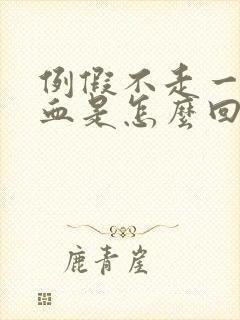 例假不走一
血是怎麼回
鹿青崖